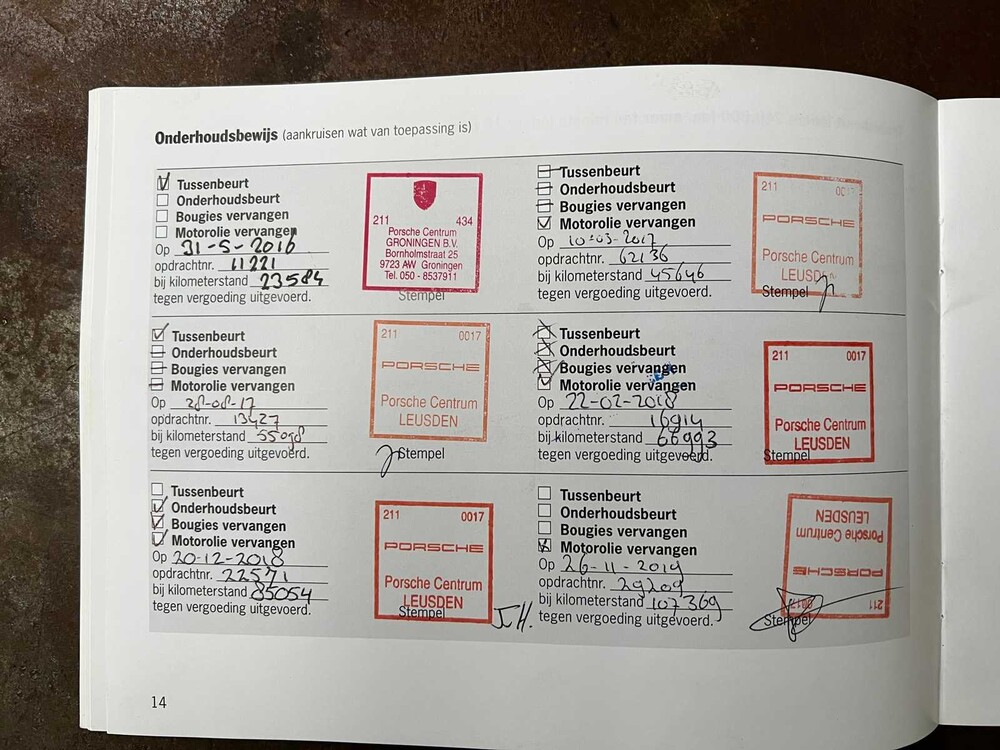 Onderhoudsbewijs (aankruisen wat van toepassing is)
Tussenbeurt
Onderhoudsbeurt
Bougies vervangen
Motorolie vervangen
Op 31-5-2016
opdrachtnr. 11221
bij kilometerstand 23584
tegen vergoeding uitgevoerd.
211 434
Porsche Centrum
GRONINGEN B.V.
Bornholmstraat 25
9723 AW Groningen
Tel. 050 - 8537911
Stempel
Tussenbeurt
Onderhoudsbeurt
Bougies vervangen
Motorolie vervangen
Op 10-03-2017
opdrachtnr. 62136
bij kilometerstand 45646
tegen vergoeding uitgevoerd.
211
PORSCHE
Porsche Centrum
LEUSDEN
Stempel
Tussenbeurt
Onderhoudsbeurt
Bougies vervangen
Motorolie vervangen
Op 28-08-17
opdrachtnr. 13427
bij kilometerstand 55098
tegen vergoeding uitgevoerd.
211 0017
PORSCHE
Porsche Centrum
LEUSDEN
Stempel
Tussenbeurt
Onderhoudsbeurt
Bougies vervangen
Motorolie vervangen
Op 22-02-2018
opdrachtnr. 16914
bij kilometerstand 66993
tegen vergoeding uitgevoerd.
211 0017
PORSCHE
Porsche Centrum
LEUSDEN
Stempel
Tussenbeurt
Onderhoudsbeurt
Bougies vervangen
Motorolie vervangen
Op 20-12-2018
opdrachtnr. 22571
bij kilometerstand 85054
tegen vergoeding uitgevoerd.
211 0017
PORSCHE
Porsche Centrum
LEUSDEN
Stempel
Tussenbeurt
Onderhoudsbeurt
Bougies vervangen
Motorolie vervangen
Op 26-11-2019
opdrachtnr. 29209
bij kilometerstand 107369
tegen vergoeding uitgevoerd.
211 0017
PORSCHE
Porsche Centrum
LEUSDEN
Stempel
14